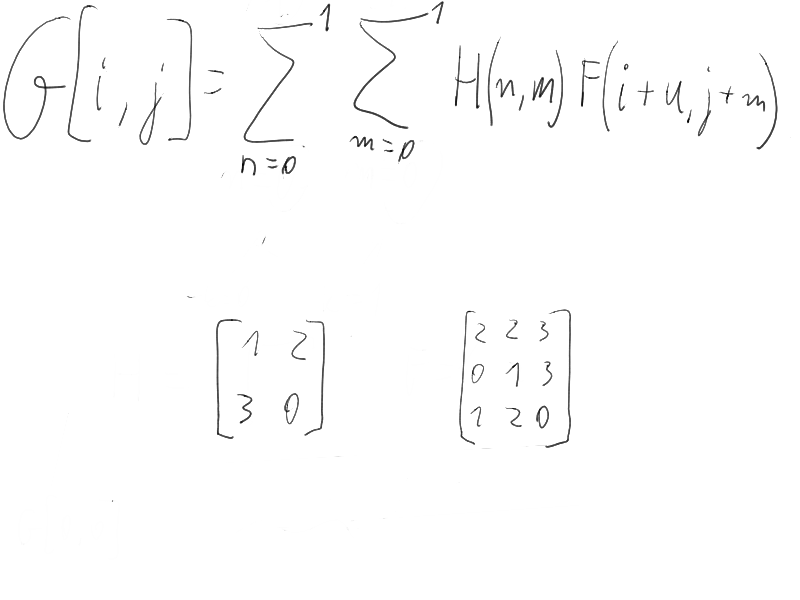 G[i,j] = \sum_{n=0}^{1} \sum_{m=0}^{1} H(n,m) F(i+u, j+m)
[1 2] [2 2 3]
[0 1 3]
[3 0] [1 2 0]